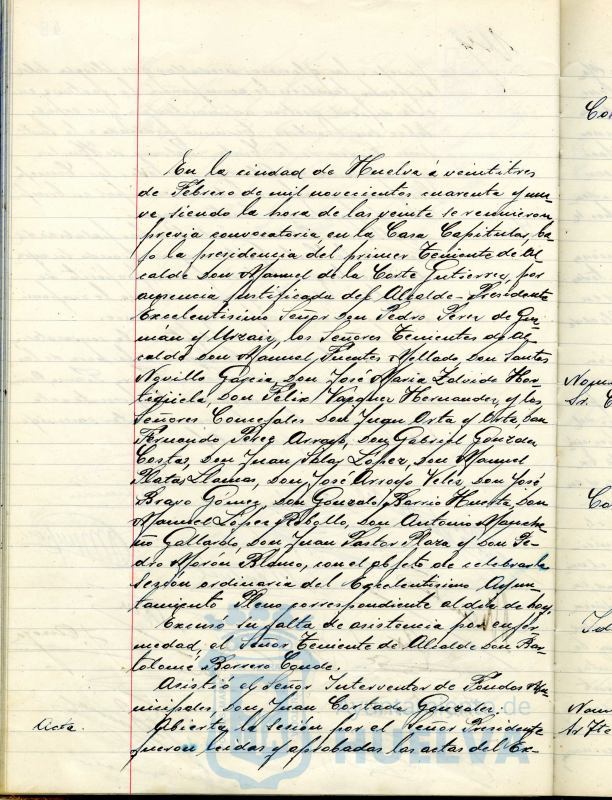 En la ciudad de Huelva á veintitres
de Febrero de mil novecientos cuarenta y nue-
ve, siendo la hora de las veinte se reunieron
previa convocatoria en la Casa Capitular, ba-
jo la presidencia del primer Teniente de Al
calde Don Manuel de la Corte Gutierrez, por
ausencia justificada del Alcalde-Presidente
Excelentisimo Señor Don Pedro Perez de Guz-
mán y Urzaiz, los Señores Tenientes de Al-
calde Don Manuel Fuentes Mellado Don Santos
Novillo Garcia, Don José Maria Zalvide Hor-
tigüela, Don Felix Vazquez Hernandez, y los
Señores Concejales Don Juan Orta y Orta, Don
Fernando Perez Arroyo, Don Gabriel Gonzalez
Costas, Don Juan Islas López, Don Manuel
Platas Llamas, Don José Arroyo Velez, Don José
Bravo Gómez, Don Gonzalo Barrio Huerta, Don
Manuel López Rebollo, Don Antonio Manche-
ño Gallardo, Don Juan Pastor Plaza y Don Pe-
dro Morón Blanco, con el objeto de celebrar la
Sesión ordinaria del Excelentisimo Ayun
tamiento Pleno correspondiente al dia de hoy.
Excusó su falta de asistencia por enfer-
medad, el Señor Teniente de Alcalde Don Bar-
tolomé Borrero Conde.
Asistió el Señor Interventor de Fondos Mu-
nicipales, Don Juan Cortada Gonzalez.
Acta. Abierta la Sesión por el Señor Presidente
fueron leidas y aprobadas las actas del Ex-
de
HUELVA